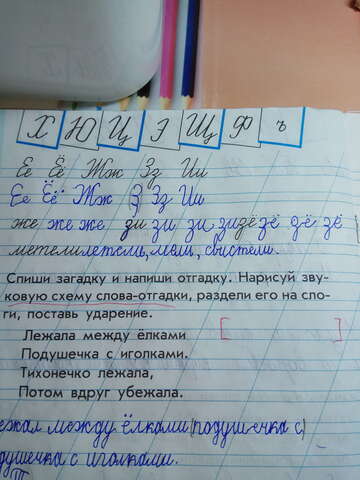 Х Ю Ц Э Щ Ф ъ
Ее Ёё Жж Зз Ии
Ее Ёё Жж З Зз Ии
же же же зи зи зи зи зё зё зё зё
метели
Спиши загадку и напиши отгадку. Нарисуй зву-
ковую схему слова-отгадки, раздели его на сло-
ги, поставь ударение.
Лежала между ёлками [ ]
Подушечка с иголками.
Тихонечко лежала,
Потом вдруг убежала.
ежал между ёлками (подушечка с)
душечка с иголками.